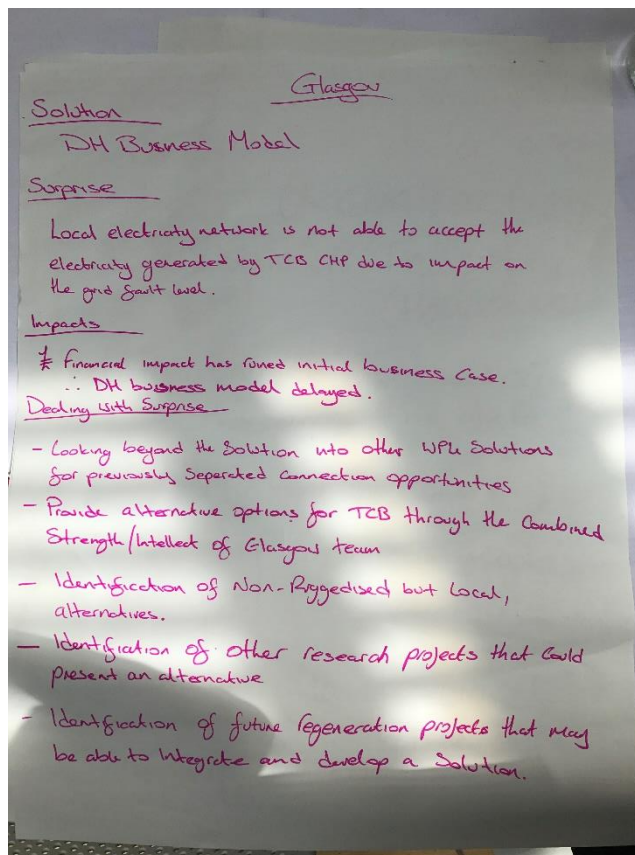 Glasgow
Solution
DH Business Model
Surprise
Local electricity network is not able to accept the
electricity generated by TCB CHP due to impact on
the grid fault level.
Impacts
Financial impact has ruined initial business case.
∴ DH business model delayed.
Dealing with Surprise
- Looking beyond the Solution into other WP4 Solutions
for previously Separated connection opportunities
- Provide alternative options for TCB through the Combined
Strength/Intellect of Glasgow team
- Identification of Non-Ruggedised but Local,
alternatives.
- Identification of other research projects that could
present an alternative
- Identification of future regeneration projects that may
be able to integrate and develop a Solution.